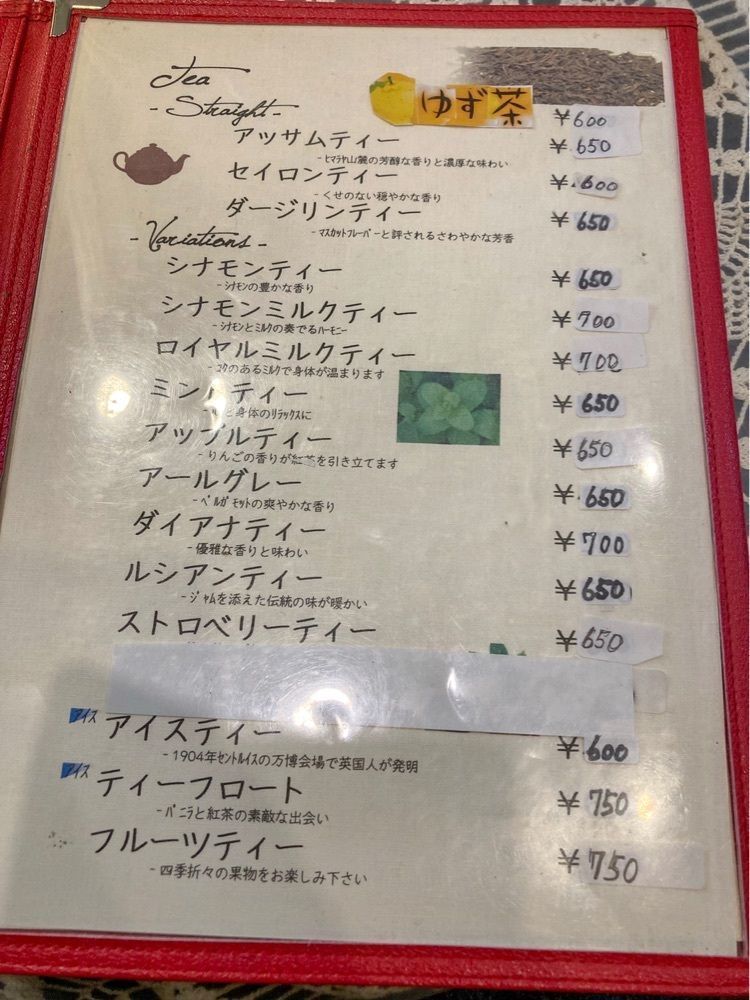 Tea
ゆず茶 ¥600
- Straight -
アッサムティー ¥650
- ﾋﾏﾗﾔ山麓の芳醇な香りと濃厚な味わい
セイロンティー ¥600
- くせのない穏やかな香り
ダージリンティー ¥650
- ﾏｽｶｯﾄﾌﾚｰﾊﾞｰと評されるさわやかな芳香
- Variations -
シナモンティー ¥650
- ｼﾅﾓﾝの豊かな香り
シナモンミルクティー ¥700
- ｼﾅﾓﾝとﾐﾙｸの奏でるﾊｰﾓﾆｰ
ロイヤルミルクティー ¥700
- ｺｸのあるﾐﾙｸで身体が温まります
ミントティー ¥650
と身体のﾘﾗｯｸｽに
アップルティー ¥650
- りんごの香りが紅茶を引き立てます
アールグレー ¥650
- ﾍﾞﾙｶﾞﾓｯﾄの爽やかな香り
ダイアナティー ¥700
- 優雅な香りと味わい
ルシアンティー ¥650
- ｼﾞｬﾑを添えた伝統の味が暖かい
ストロベリーティー ¥650
アイス アイスティー ¥600
- 1904年ｾﾝﾄﾙｲｽの万博会場で英国人が発明
アイス ティーフロート ¥750
- ﾊﾞﾆﾗと紅茶の素敵な出会い
フルーツティー ¥750
- 四季折々の果物をお楽しみ下さい